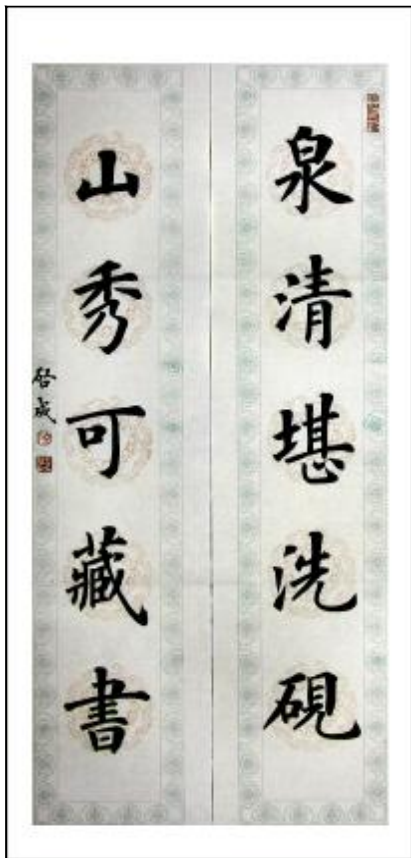 泉清堪洗硯
山秀可藏書
启成